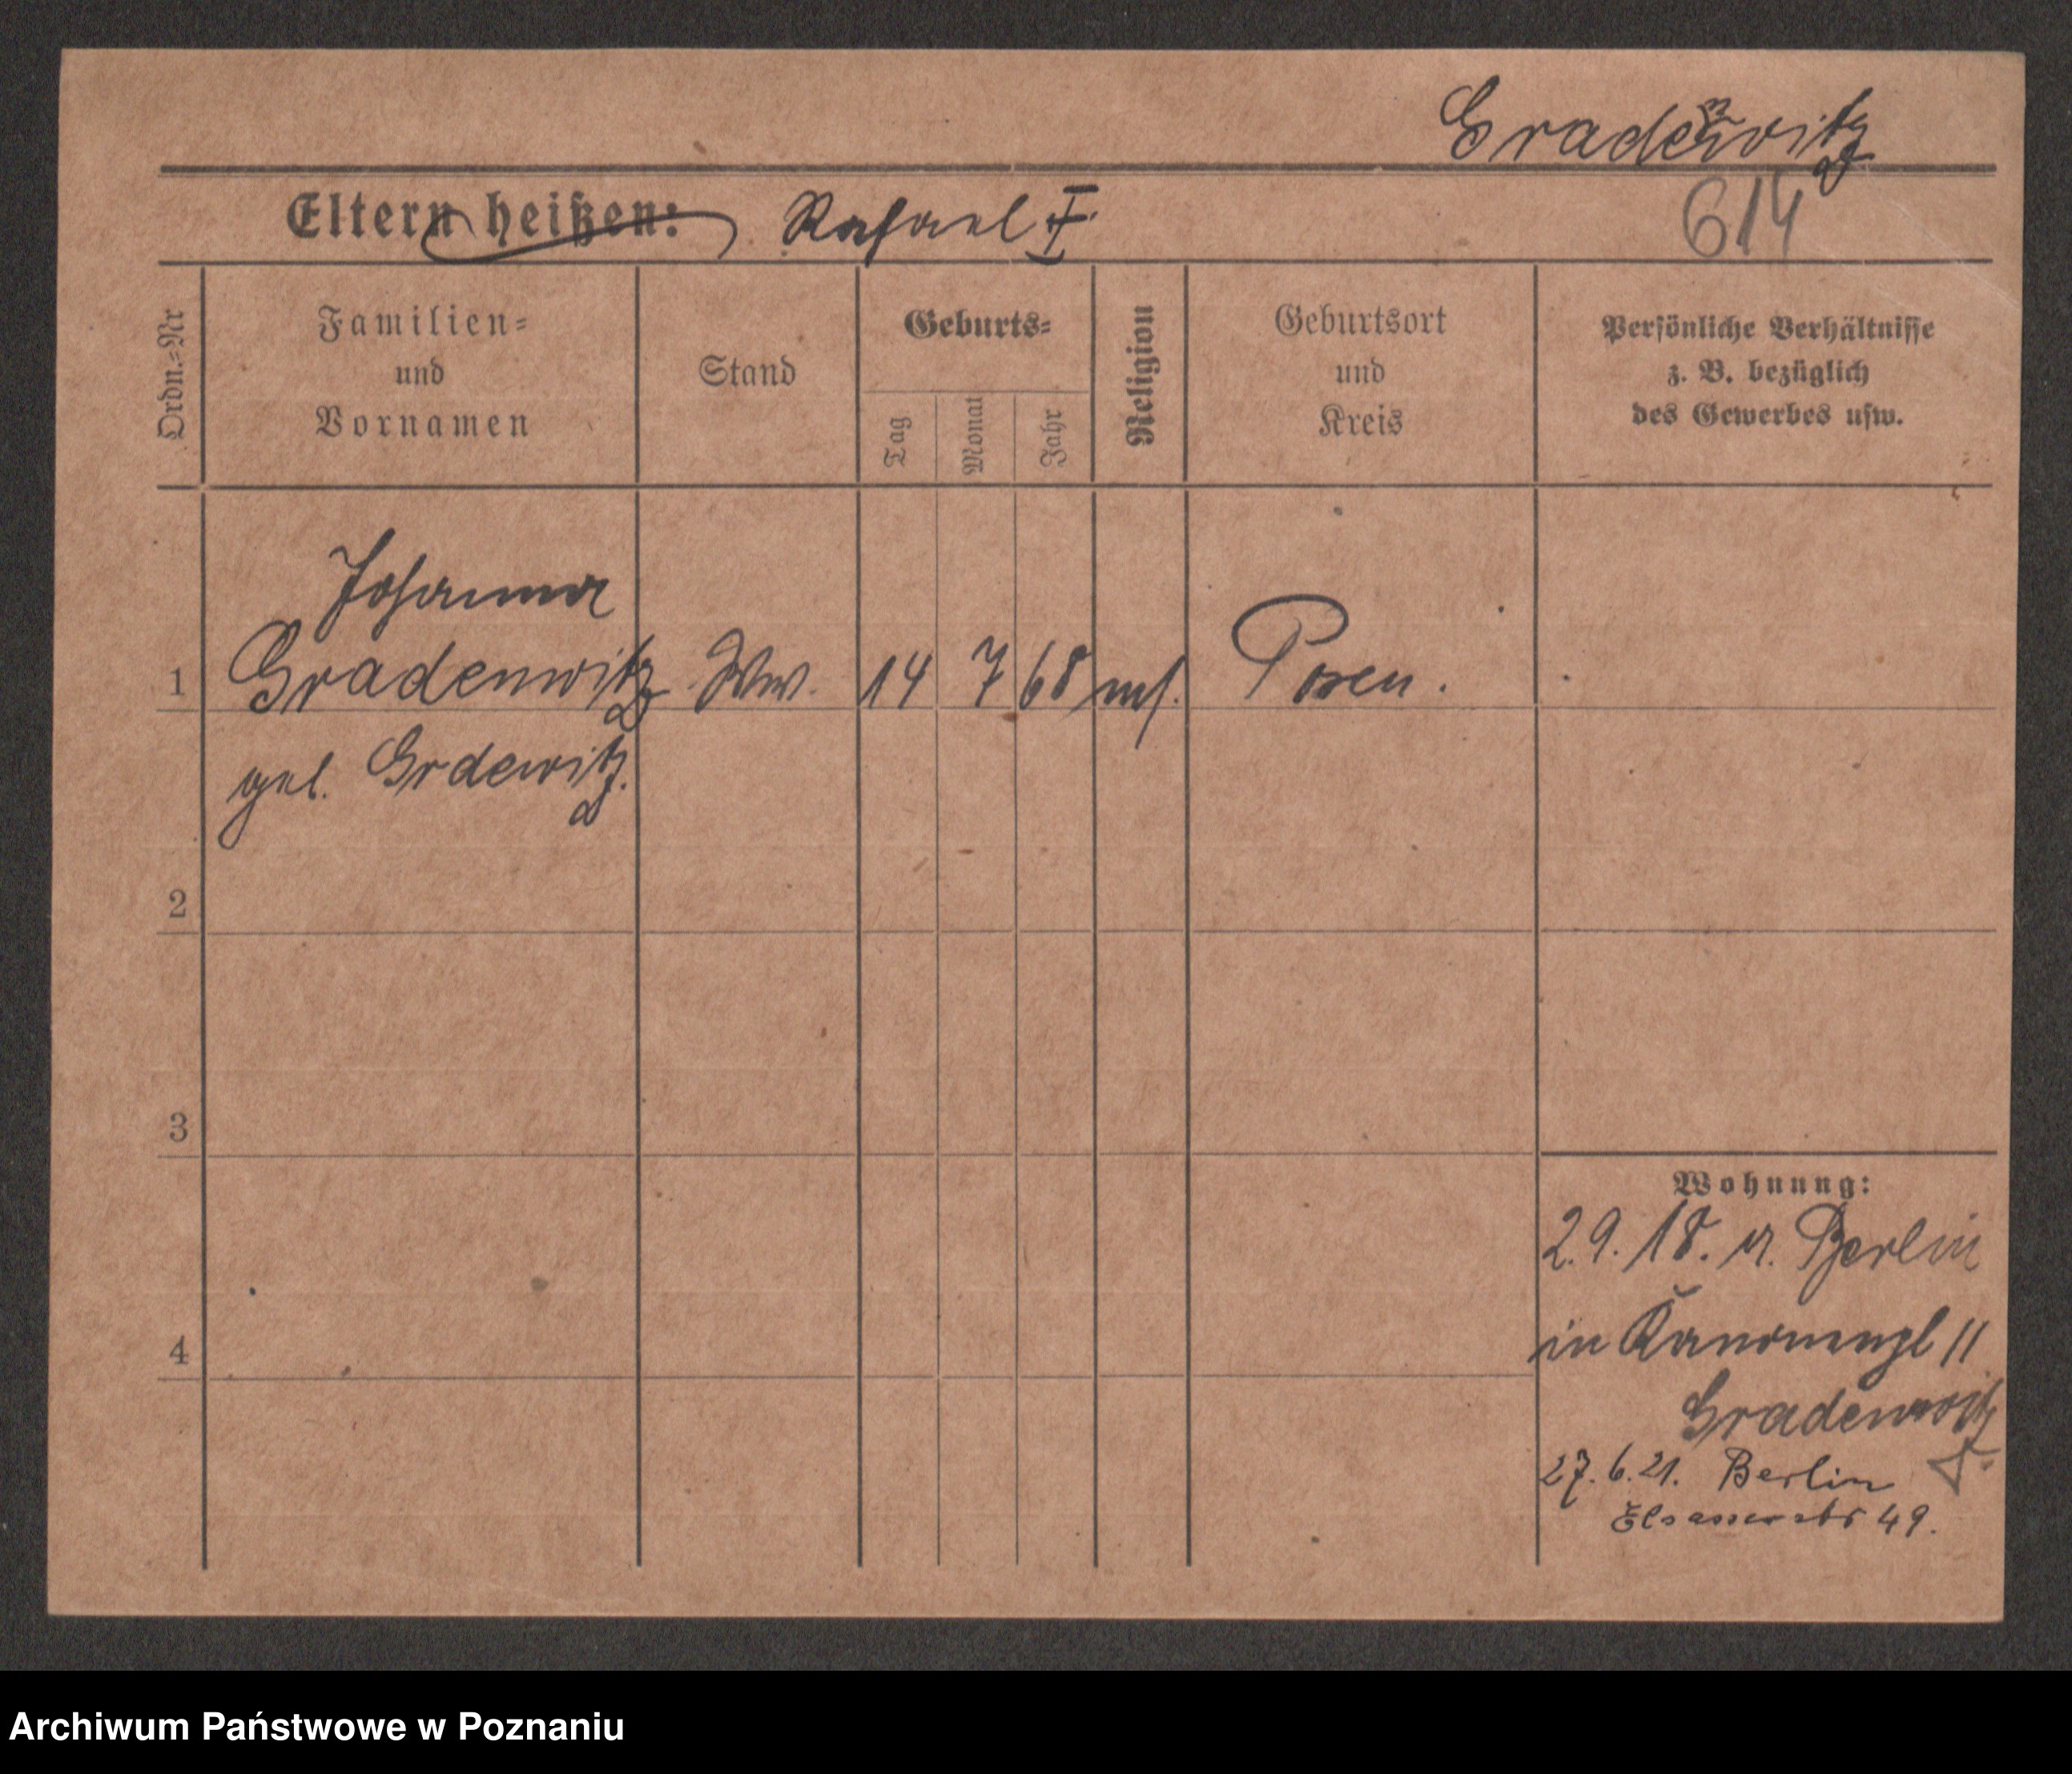 Gradenwitz
Eltern heißen: Rafael I.
614
Ordn.=Nr
Familien=
und
Vornamen
Stand
Geburts=
Tag
Monat
Jahr
Religion
Geburtsort
und
Kreis
Persönliche Verhältnisse
z. B. bezüglich
des Gewerbes usw.
Johanna
1 Gradenwitz Ww. 14 7 68 mos. Posen.
geb. Grdewitz.
2
3
4
Wohnung:
2.9.18. n. Berlin
in 11
Gradenwitz
27.6.21. Berlin
Elsasserstr 49.
Archiwum Państwowe w Poznaniu